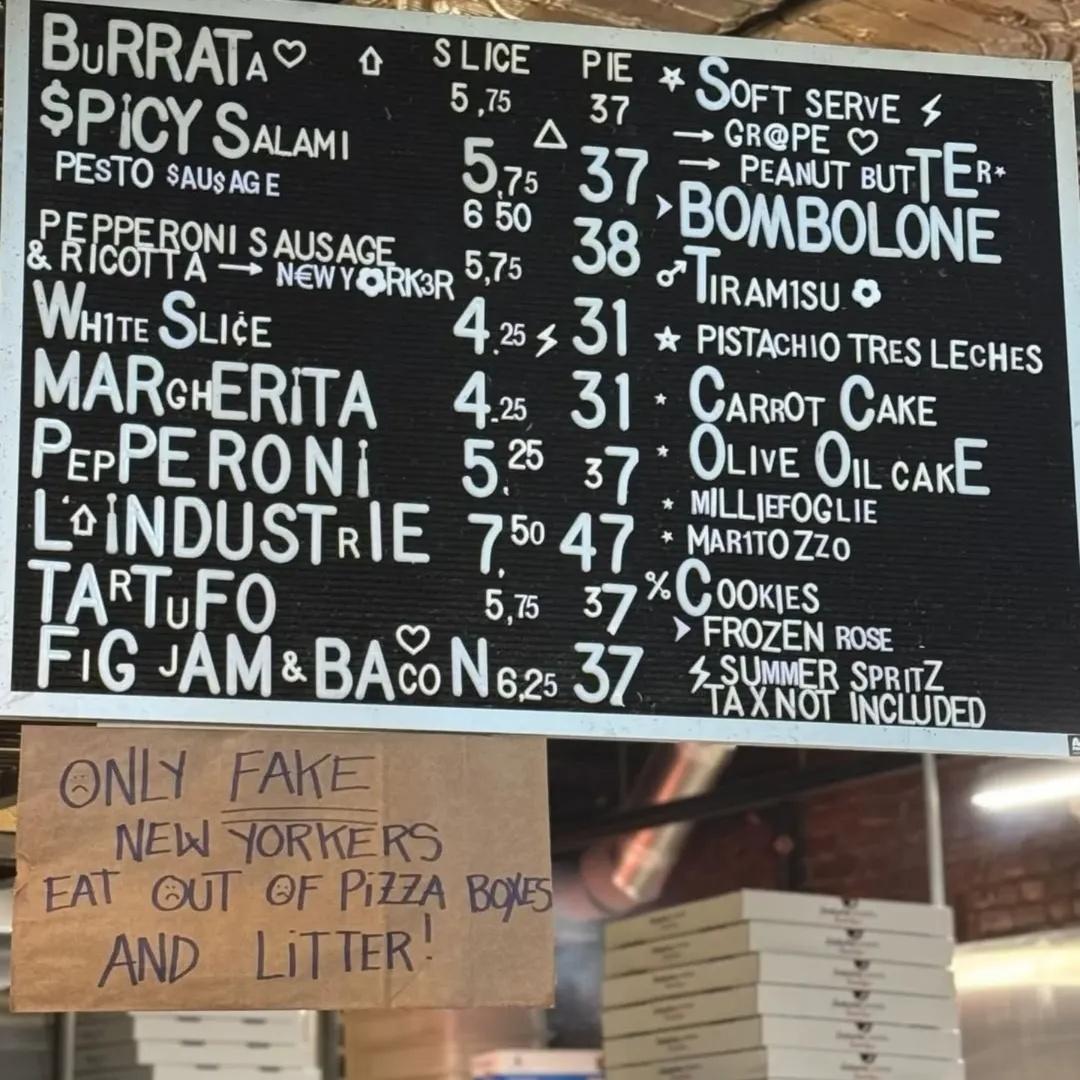 BuRRATA ♡ ⇧ SLICE PIE
5,75 37
$PiCY SALAMI 5,75 △ 37
PESTO $AU$AGE 6 50 38
PEPPERONI SAUSAGE
& RICOTTA → N€WY✿RK3R 5,75
WH1TE SLI¢E 4.25 ⚡ 31
MARGHERiTA 4.25 31
PEPPERONi 5.25 37
L'⇧iNDUSTRIE 7.50 47
TARTuFO 5,75 37
FiG JAM & BA♡CON 6,25 37
☆ SOFT SERVE ⚡
→ GR@PE ♡
→ PEANUT BUTTER*
> BOMBOLONE
♂ TIRAM1SU ✿
★ PISTACHIO TRES LECHES
* CARROT CAKE
* OLIVE OIL CAKE
* MILLIEFOGLIE
* MAR1TOZZO
% COOKIES
> FROZEN ROSE
⚡ SUMMER SPRITZ
TAX NOT INCLUDED
ONLY FAKE
NEW YORKERS
EAT OUT OF PiZZA BOXES
AND LiTTER!